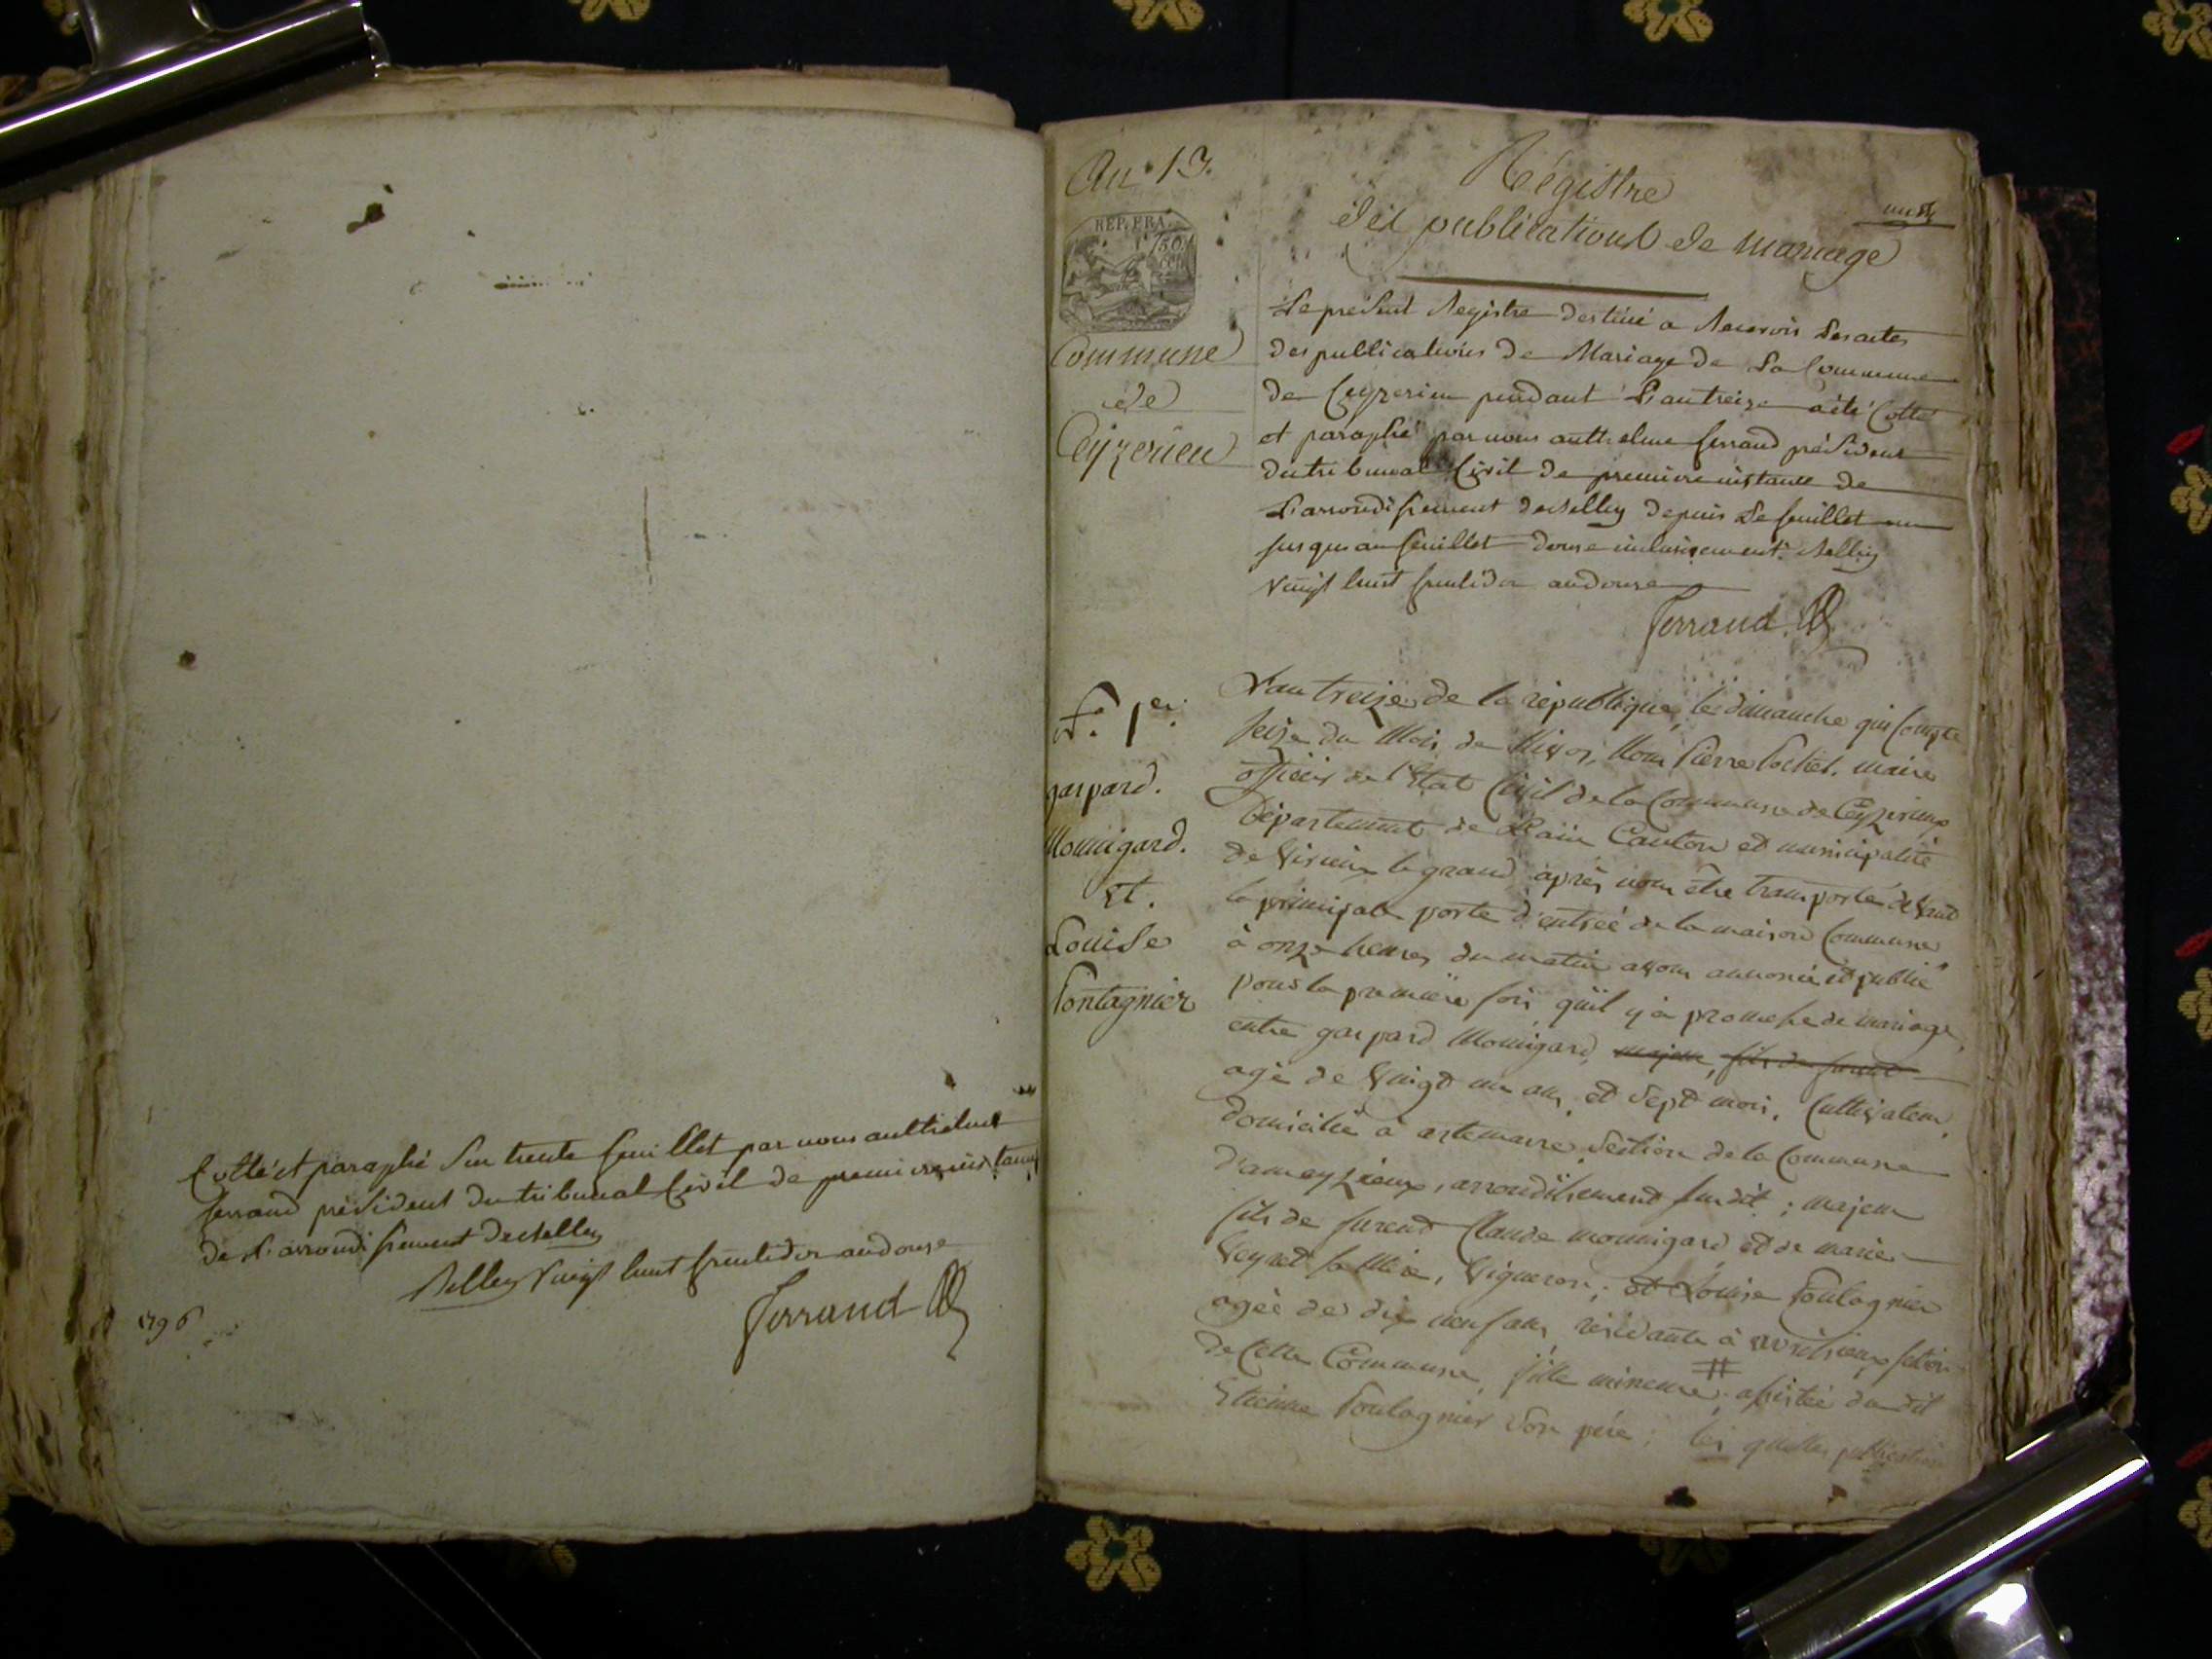 Cotté et paraphé Sur trente feuillet par nous anthelme
ferrand président du tribunal Civil de premiere instance
de L'arrondissement de Belley
Belley Vingt huit fructidor an douze
Ferrand
1796
An 13.
Régistre
des publications de mariage
un
REP. FRA.
50
cen
Commune
de
Ceÿzerieu
Le présent Registre destiné a Recevoir Les actes
des publications de Mariage de La Commune
de Ceyzerieu pendant L'an treize a été Cotté
et paraphé par nous anthelme ferrand président
du tribunal Civil de premiere instance de
L'arrondissement de Belley depuis Le feuillet un
jusqu au feuillet douze inclusivement. Belley
Vingt huit fructidor an douze
Ferrand
N.° 1er.
gaspard.
Momigard.
Et.
Louise
Fontagnier
L'an treize de la république, le dimanche qui compte
seize du Mois de Nivos, Nous Pierre Cochet. maire
officier de l'Etat Civil de la Commune de Ceyzerieux
Département de L'ain Canton et municipalité
de Virieux le grand après nous être transporté devant
la principale porte d'entrée de la maison Commune
à onze heures du matin avons annoncé et publié
pour la première fois qu'il y a promesse de mariage,
entre gaspard Momigard, majeur, fils de furent
agé de Vingt un ans, et Sept mois, Cultivateur,
domicilié à artemarre Section de la Commune
d'ameyzieux, arrondissement susdit ; majeur
fils de furent Claude momigard et de marie
Veyret sa Mère, Vigneron ; et Louise Fontagnier
agée de dix neuf ans, résidante à section
de Cette Commune, fille mineure #, assistée du dit
Etienne Fontagnier Son père ; les quelles publications